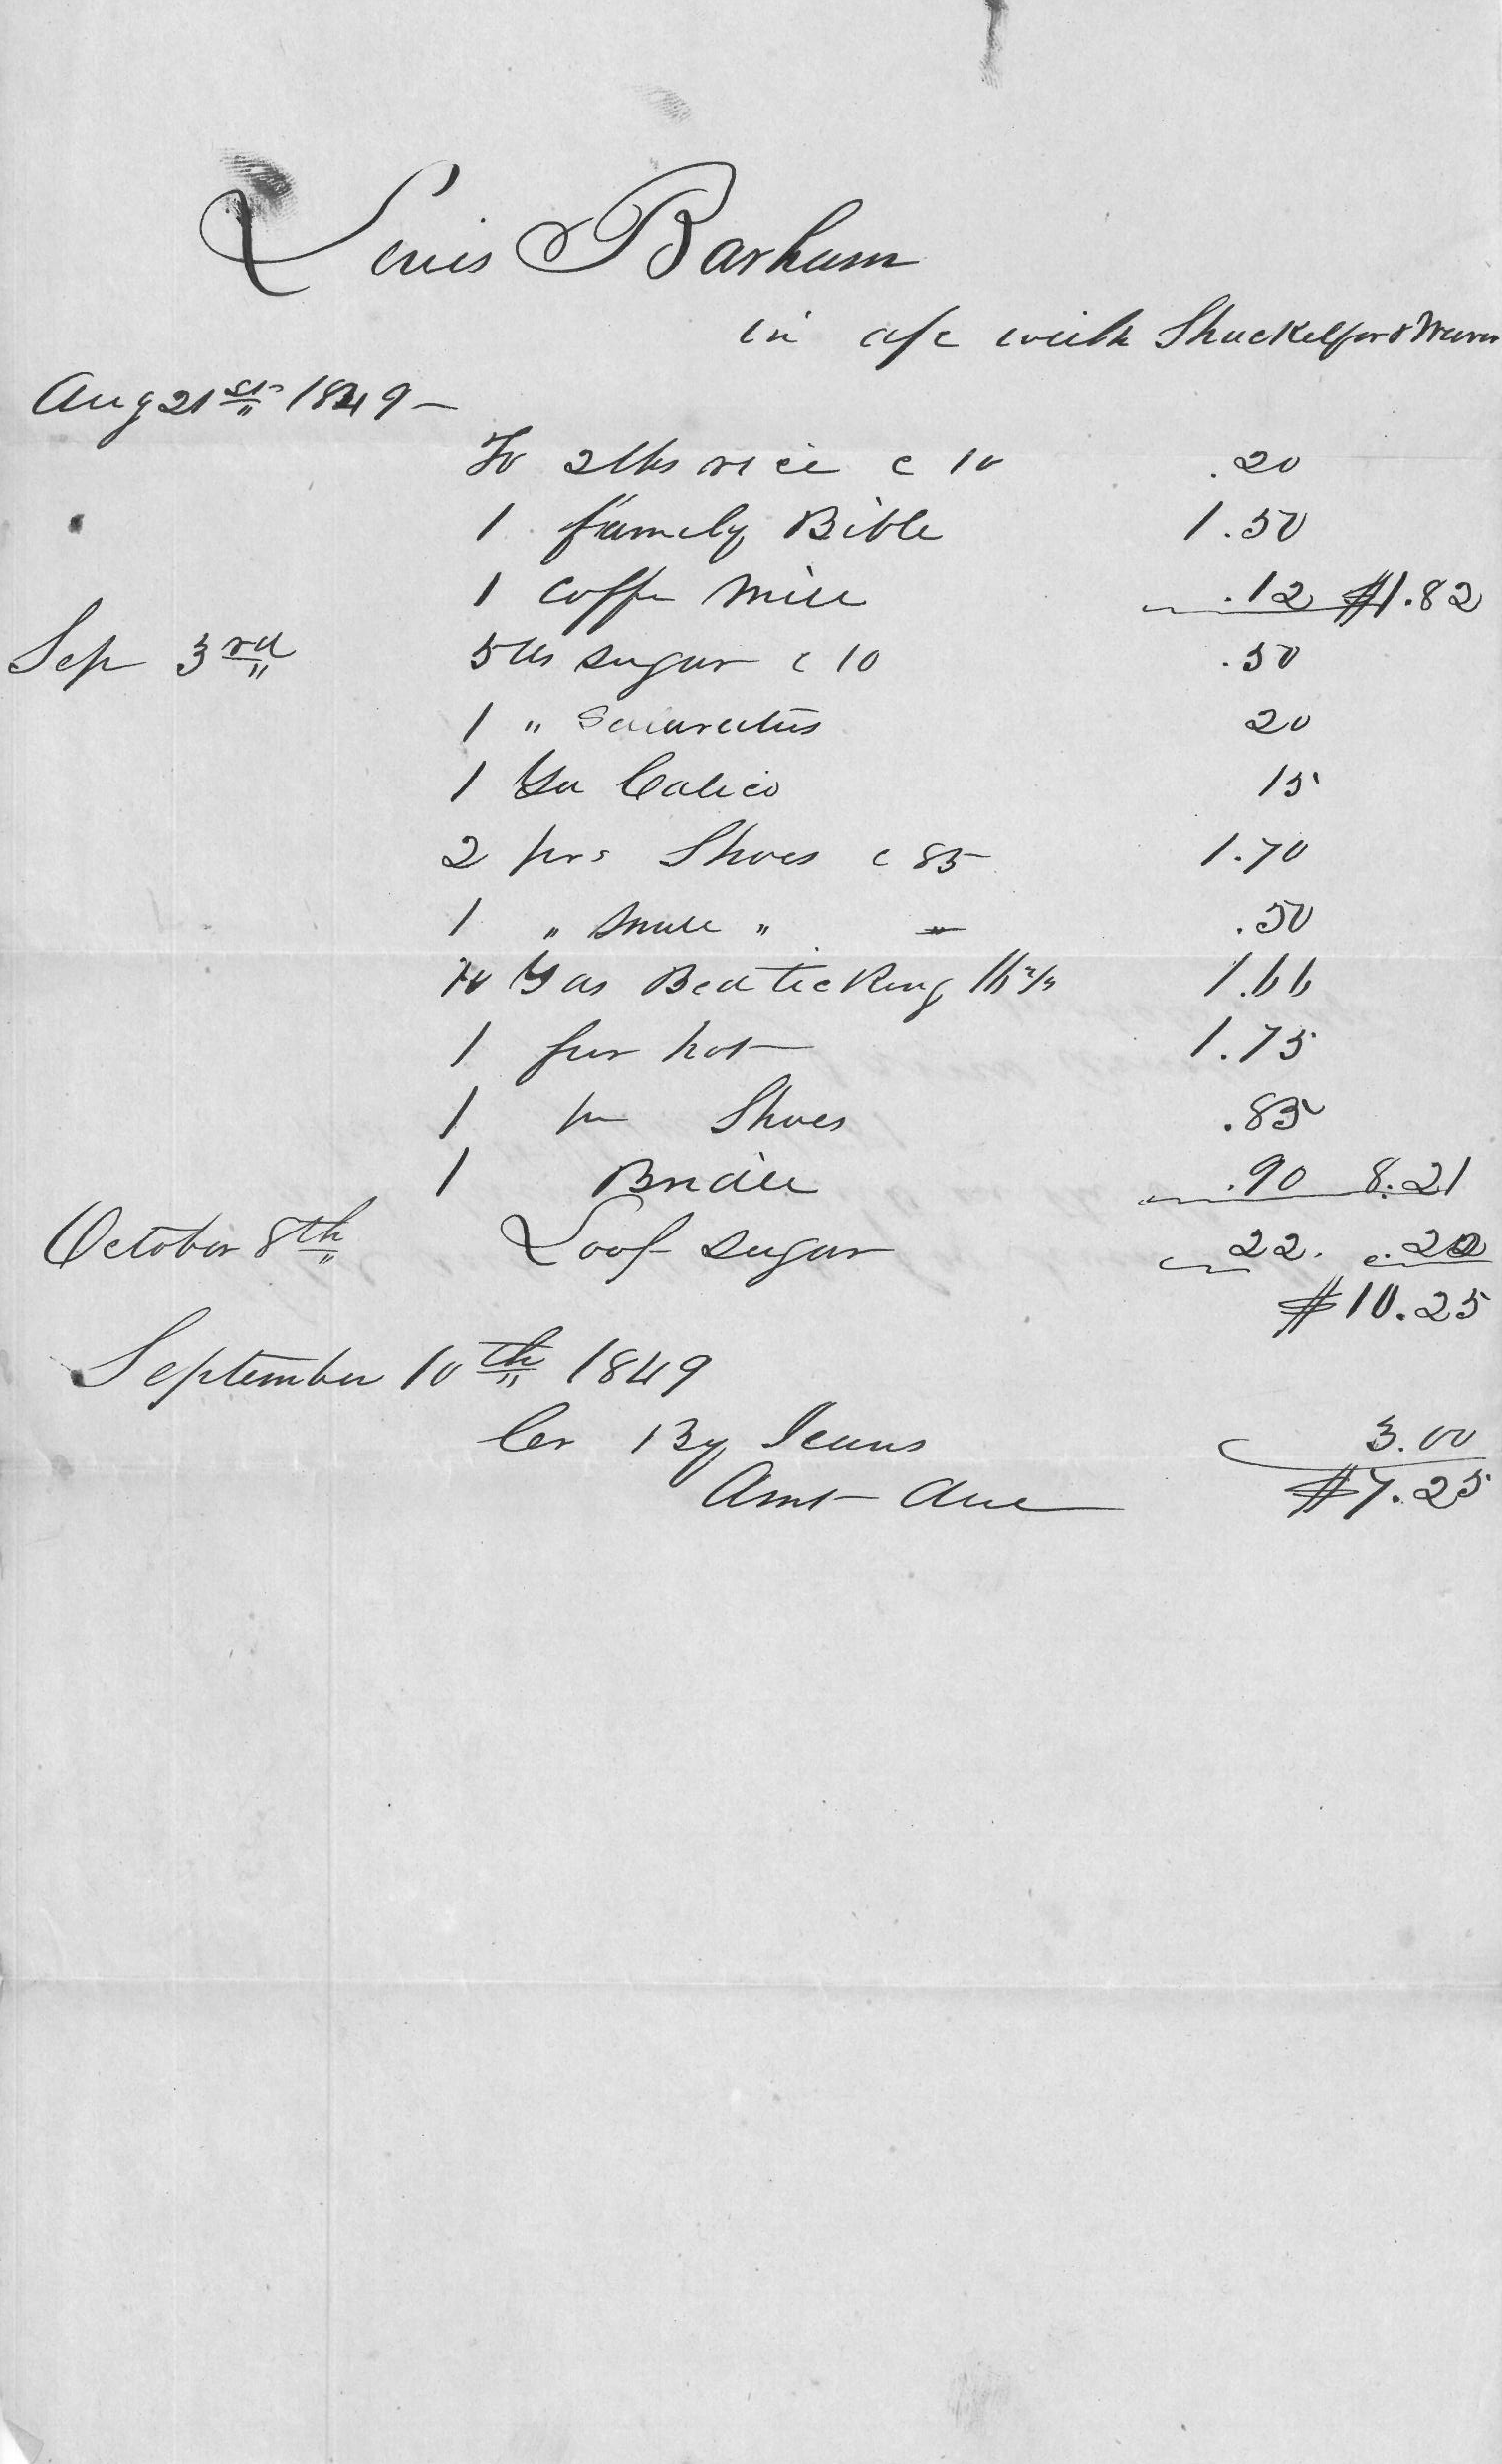 Lewis Barham
in a/c with Shackelford &
Aug 21st 1849 –
To 2 lbs rice c 10 .20
1 family Bible 1.50
1 Coffe Mill .12 $1.82
Sep 3rd 5 lbs sugar c 10 .50
1 " Salaratus 20
1 Yd Calico 15
2 prs Shoes c 85 1.70
1 " Small " " .50
10 Yds Bed ticking 16 2/3 1.66
1 fur hat 1.75
1 pr Shoes .85
1 Bridle .90 8.21
October 8th Loaf sugar 22. .22
$10.25
September 10th 1849
Cr By Jeans 3.00
Amt due $7.25